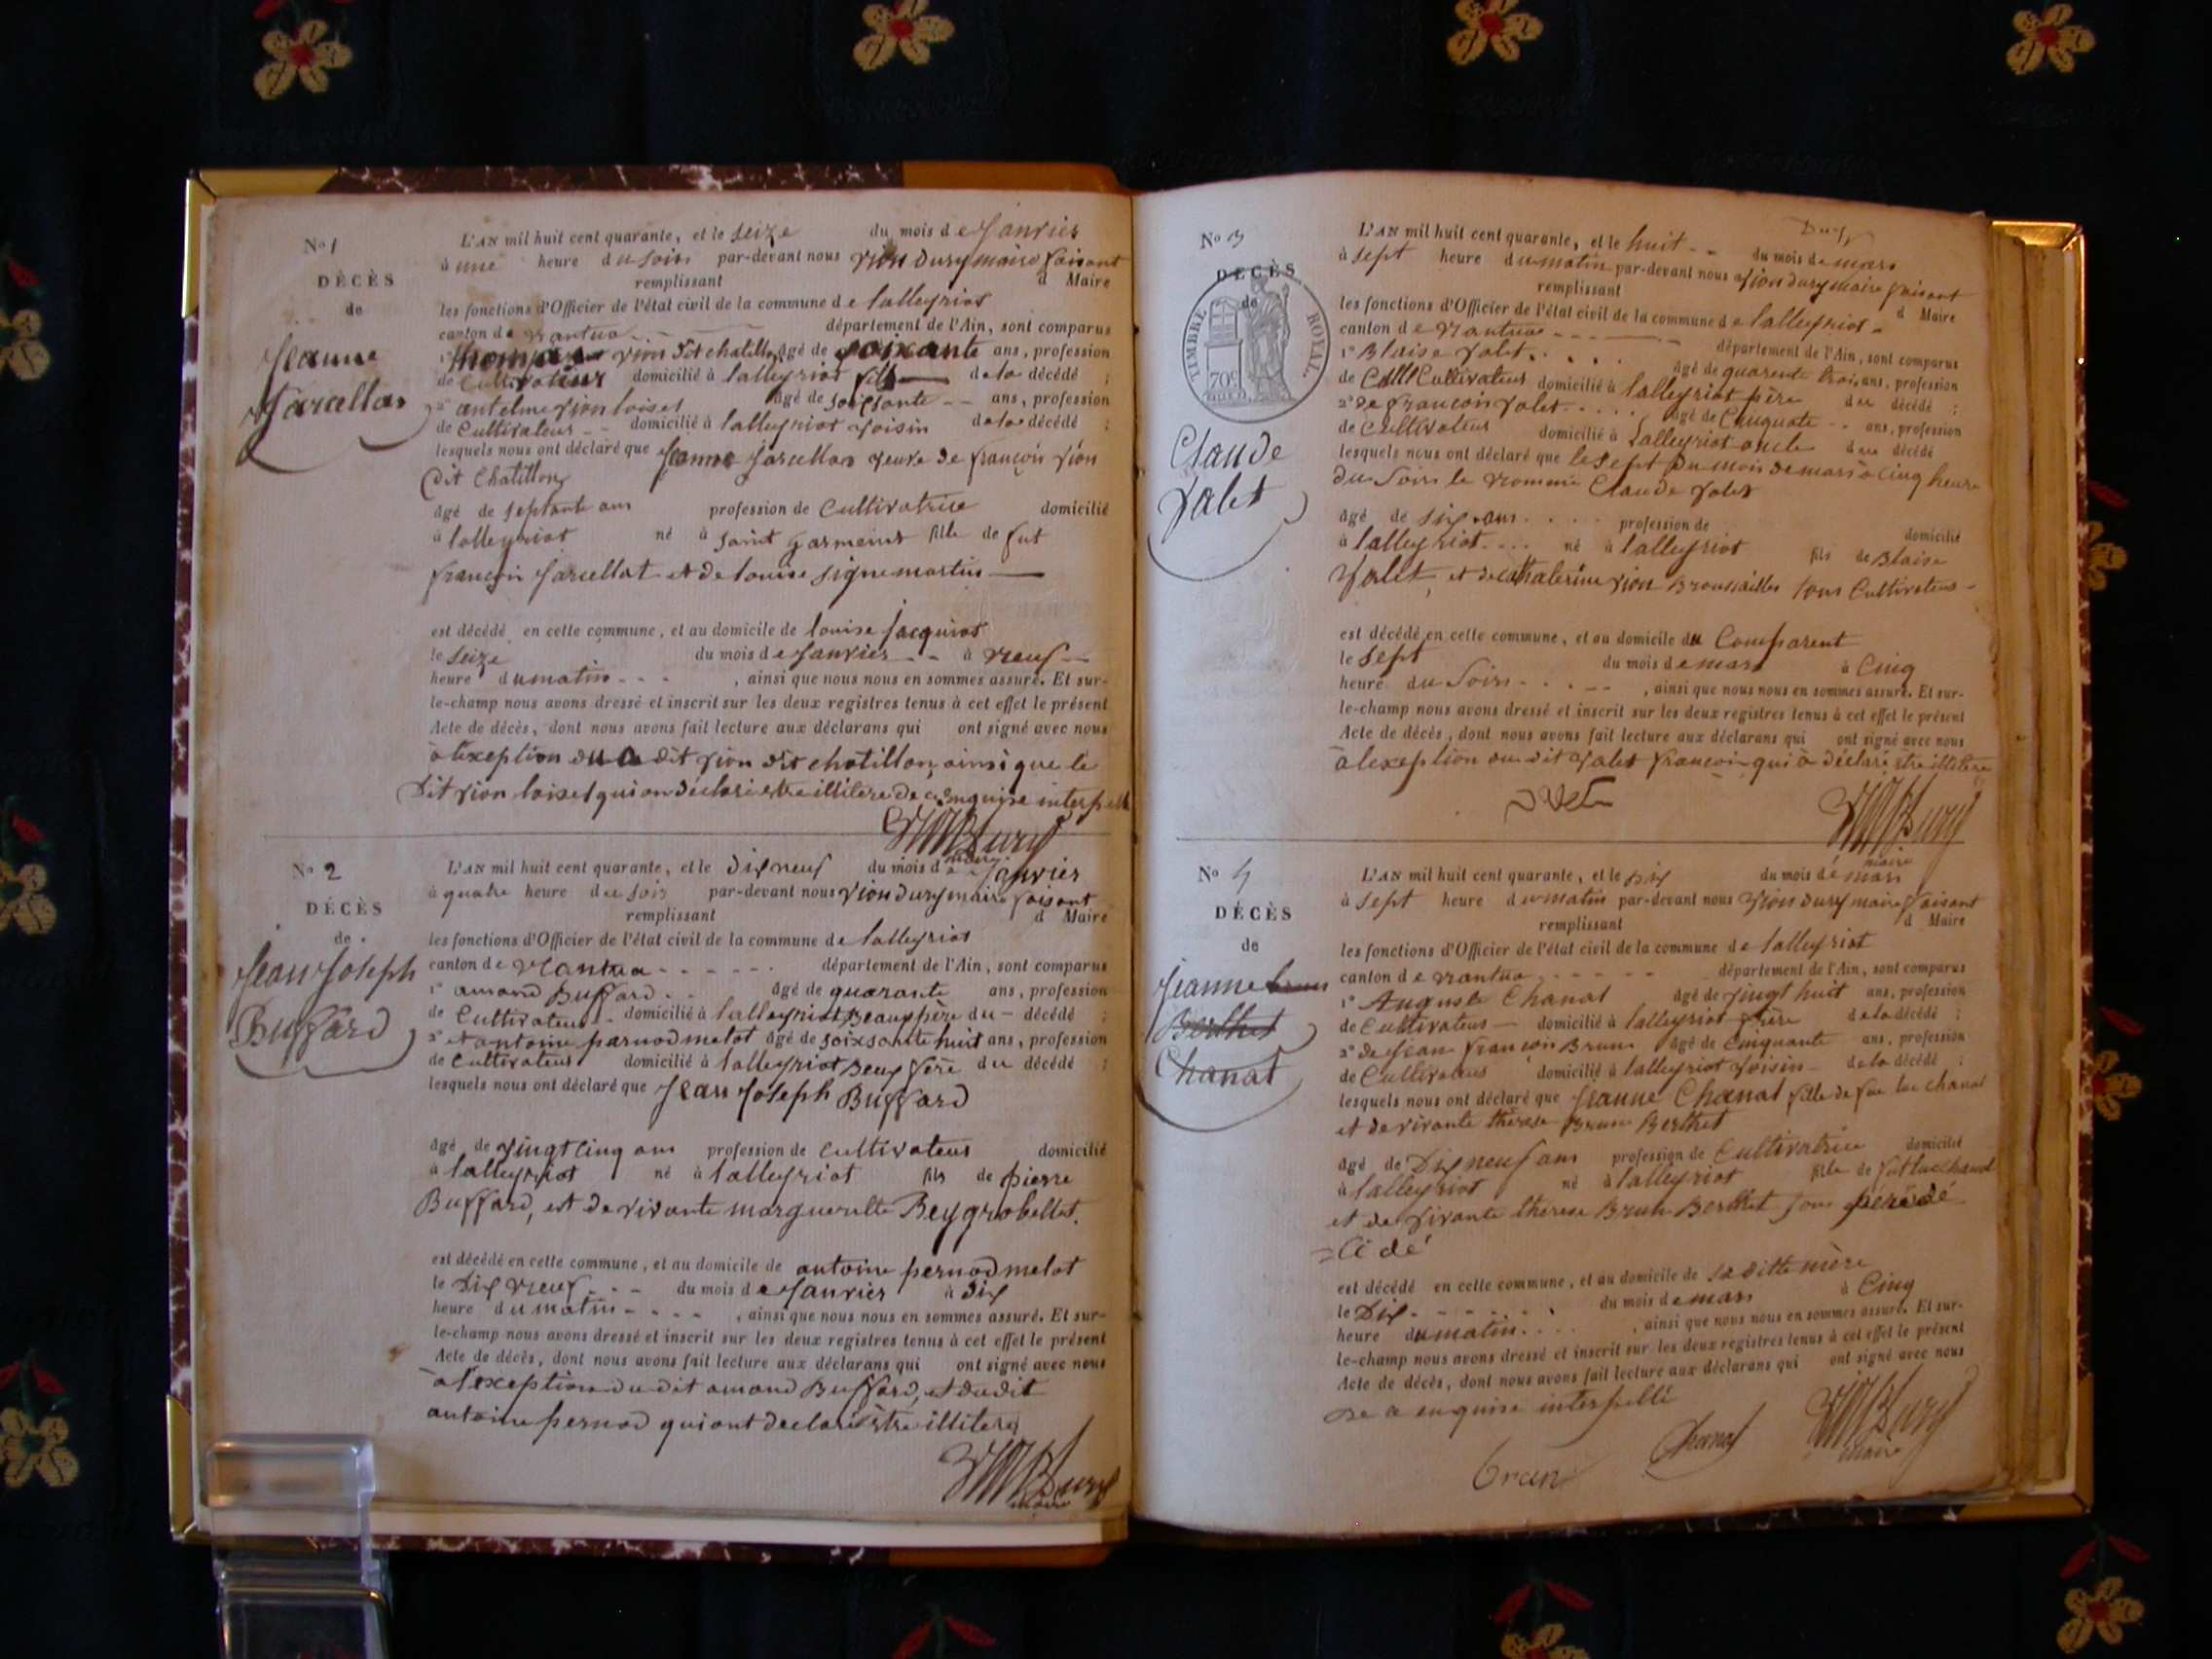 No 1
DÉCÈS
de
Jeanne
L'AN mil huit cent quarante, et le seize du mois de Janvier
à une heure du soir par-devant nous Vion Dury maire faisant
remplissant d Maire
les fonctions d'Officier de l'état civil de la commune de lalleyriat
canton de Nantua département de l'Ain, sont comparus
1° thomas Vion dit chatillon âgé de soixante ans, profession
de Cultivateur domicilié à lalleyriat fils de la décédé ;
2° antelme Vion loiset âgé de soixsante ans, profession
de Cultivateur domicilié à lalleyriat Voisin de la décédé ;
lesquels nous ont déclaré que Jeanne veuve de françois Vion
Dit Chatillon
âgé de septante ans profession de Cultivatrice domicilié
à lalleyriat né à saint germains fille de fut
françois et de louise
est décédé en cette commune, et au domicile de louise Jacquiot
le Seize du mois de Janvier à neuf
heure du matin , ainsi que nous nous en sommes assuré. Et sur-
le-champ nous avons dressé et inscrit sur les deux registres tenus à cet effet le présent
Acte de décès, dont nous avons fait lecture aux déclarans qui ont signé avec nous
à l'exeption du dit Vion dit chatillon, ainsi que le
Dit Vion loiset qui on déclaré être illitere de ce enquise
maire
No 2
DÉCÈS
de
Jean Joseph
Buffard
L'AN mil huit cent quarante, et le Dix neuf du mois de Janvier
à quatre heure du soir par-devant nous Vion Dury maire faisant
remplissant d Maire
les fonctions d'Officier de l'état civil de la commune de lalleyriat
canton de Nantua département de l'Ain, sont comparus
1° amand Buffard âgé de quarante ans, profession
de Cultivateur domicilié à lalleyriat Beaux père du décédé ;
2° et antoine pernod melot âgé de soixsante huit ans, profession
de Cultivateur domicilié à lalleyriat Beux père du décédé ;
lesquels nous ont déclaré que Jean Joseph Buffard
âgé de Vingt Cinq ans profession de Cultivateur domicilié
à lalleyriat né à lalleyriat fils de pierre
Buffard, et de vivante marguerite Reygrobellet.
est décédé en cette commune, et au domicile de antoine pernod melot
le Dix Neuf du mois de Janvier à Dix
heure du matin , ainsi que nous nous en sommes assuré. Et sur-
le-champ nous avons dressé et inscrit sur les deux registres tenus à cet effet le présent
Acte de décès, dont nous avons fait lecture aux déclarans qui ont signé avec nous
à l'exception du dit amand Buffard, et du dit
antoine pernod qui ont declaré être illitere
maire
Dury
No 3
DÉCÈS
de
TIMBRE ROYAL.
70c
Claude
Jalet
L'AN mil huit cent quarante, et le huit du mois de mars
à sept heure du matin par-devant nous Vion Dury maire faisant
remplissant d Maire
les fonctions d'Officier de l'état civil de la commune de lalleyriat
canton de Nantua département de l'Ain, sont comparus
1° Blaise Jalet âgé de quarente trois ans, profession
de Cultivateur domicilié à lalleyriat père du décédé ;
2° de françois Jalet âgé de Cinquate ans, profession
de Cultivateur domicilié à Lalleyriat oncle du décédé
lesquels nous ont déclaré que le sept du mois de mars à cinq heure
du Soir le Nommé Claude Jalet
âgé de Six ans profession de domicilié
à lalleyriat né à lalleyriat fils de Blaise
Jalet, et de Catherine Vion Broussailles tous Cultivateur
est décédé en cette commune, et au domicile du Comparent
le Sept du mois de mars à Cinq
heure du Soir , ainsi que nous nous en sommes assuré. Et sur-
le-champ nous avons dressé et inscrit sur les deux registres tenus à cet effet le présent
Acte de décès, dont nous avons fait lecture aux déclarans qui ont signé avec nous
à l'exeption du dit Jalet françois qui à déclaré être illitere
maire
No 4
DÉCÈS
de
Jeanne brun
Berthet
Chanat
L'AN mil huit cent quarante, et le Dix du mois de mars
à sept heure du matin par-devant nous Vion Dury maire faisant
remplissant d Maire
les fonctions d'Officier de l'état civil de la commune de lalleyriat
canton de Nantua département de l'Ain, sont comparus
1° Auguste Chanat âgé de Vingt huit ans, profession
de Cultivateur domicilié à lalleyriat frère de la décédé ;
2° de Jean françois Brun âgé de Cinquante ans, profession
de Cultivateur domicilié à lalleyriat Voisin de la décédé ;
lesquels nous ont déclaré que Jeanne Chanat fille de feu luc chanat
et de vivante thérèse Brun Berthet
âgé de Dix neuf ans profession de Cultivatrice domicilié
à lalleyriat né à lalleyriat fille de fut luc Chanat
et de Vivante thérese Brun Berthet
est décédé en cette commune, et au domicile de sa ditte mère
le Dix du mois de mars à Cinq
heure du matin , ainsi que nous nous en sommes assuré. Et sur-
le-champ nous avons dressé et inscrit sur les deux registres tenus à cet effet le présent
Acte de décès, dont nous avons fait lecture aux déclarans qui ont signé avec nous
de ce enquise interpellé
brun Chanat
maire